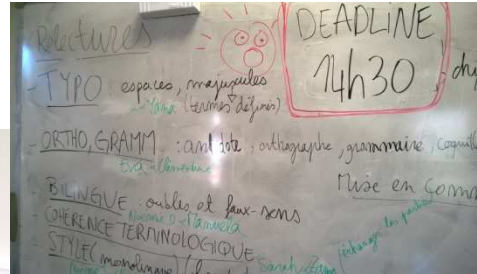 Relectures
DEADLINE
14h30
- TYPO espaces, majuscules
Yama (termes définis)
- ORTHO, GRAMM : antidote, orthographe, grammaire,
Eva - Clémentine
Mise en
- BILINGUE : oublis et faux-sens
Manuela
- COHERENCE TERMINOLOGIQUE
STYLE (monolingue)
Sarah